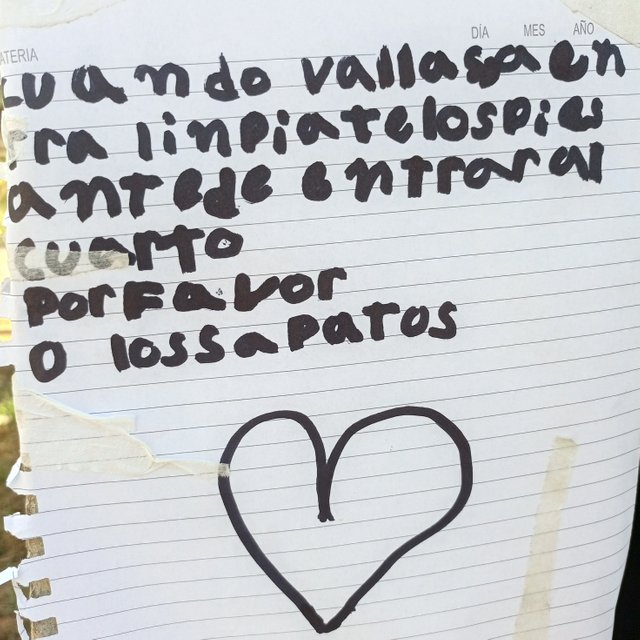 ATERIA DÍA MES AÑO
cuando vallasaen
tra linpiatelospies
antede entraral
cuarto
porFavor
o lossapatos